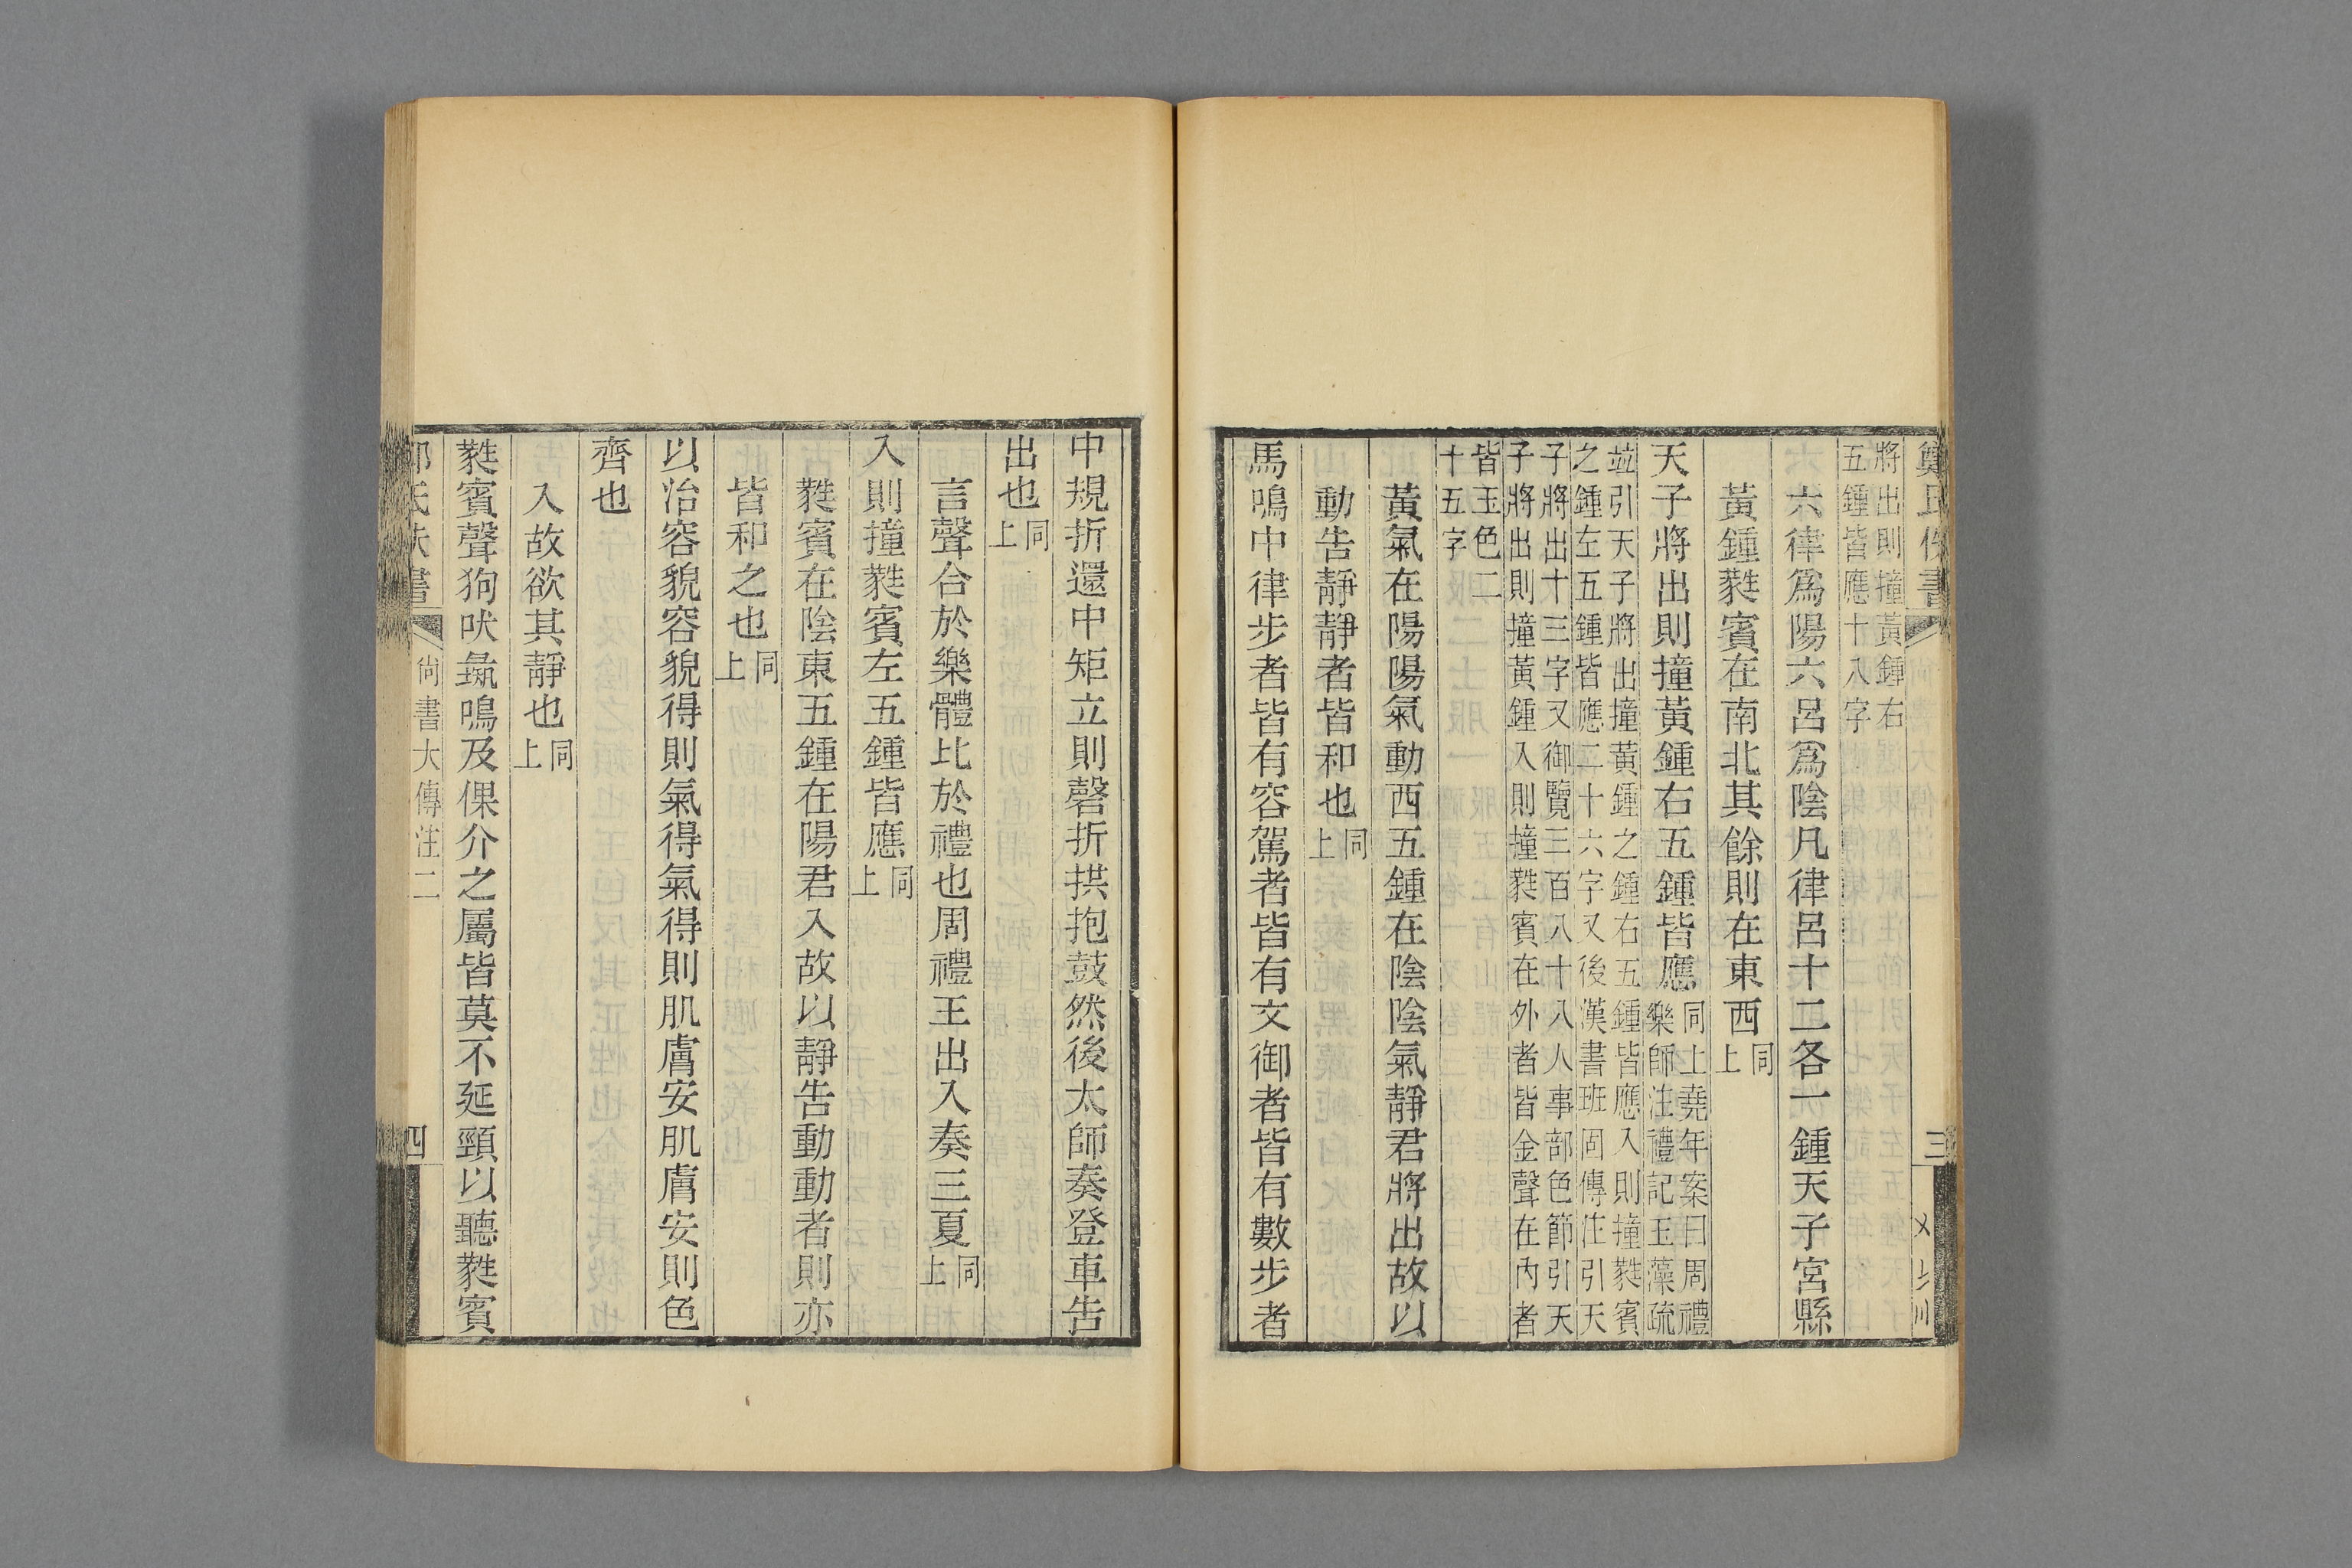 鄭氏佚書
三
將出則撞黃鍾右
五鍾皆應十八字
六律爲陽六呂爲陰凡律呂十二各一鍾天子宮縣
黃鍾蕤賓在南北其餘則在東西同上
天子將出則撞黃鍾右五鍾皆應同上堯年案曰周禮
樂師注禮記玉藻疏
竝引天子將出撞黃鍾之鍾右五鍾皆應入則撞蕤賓
之鍾左五鍾皆應二十六字又後漢書班固傳注引天
子將出十三字又御覽三百八十八人事部色節引天
子將出則撞黃鍾入則撞蕤賓在外者皆金聲在內者
皆玉色二
十五字
黃氣在陽陽氣動西五鍾在陰陰氣靜君將出故以
動告靜靜者皆和也同上
馬鳴中律步者皆有容駕者皆有文御者皆有數步者
中規折還中矩立則磬折拱抱鼓然後太師奏登車告
出也同上
言聲合於樂體比於禮也周禮王出入奏三夏同上
入則撞蕤賓左五鍾皆應同上
蕤賓在陰東五鍾在陽君入故以靜告動動者則亦
皆和之也同上
以治容貌容貌得則氣得氣得則肌膚安肌膚安則色
齊也
入故欲其靜也同上
蕤賓聲狗吠彘鳴及倮介之屬皆莫不延頸以聽蕤賓
尚書大傳注二
四